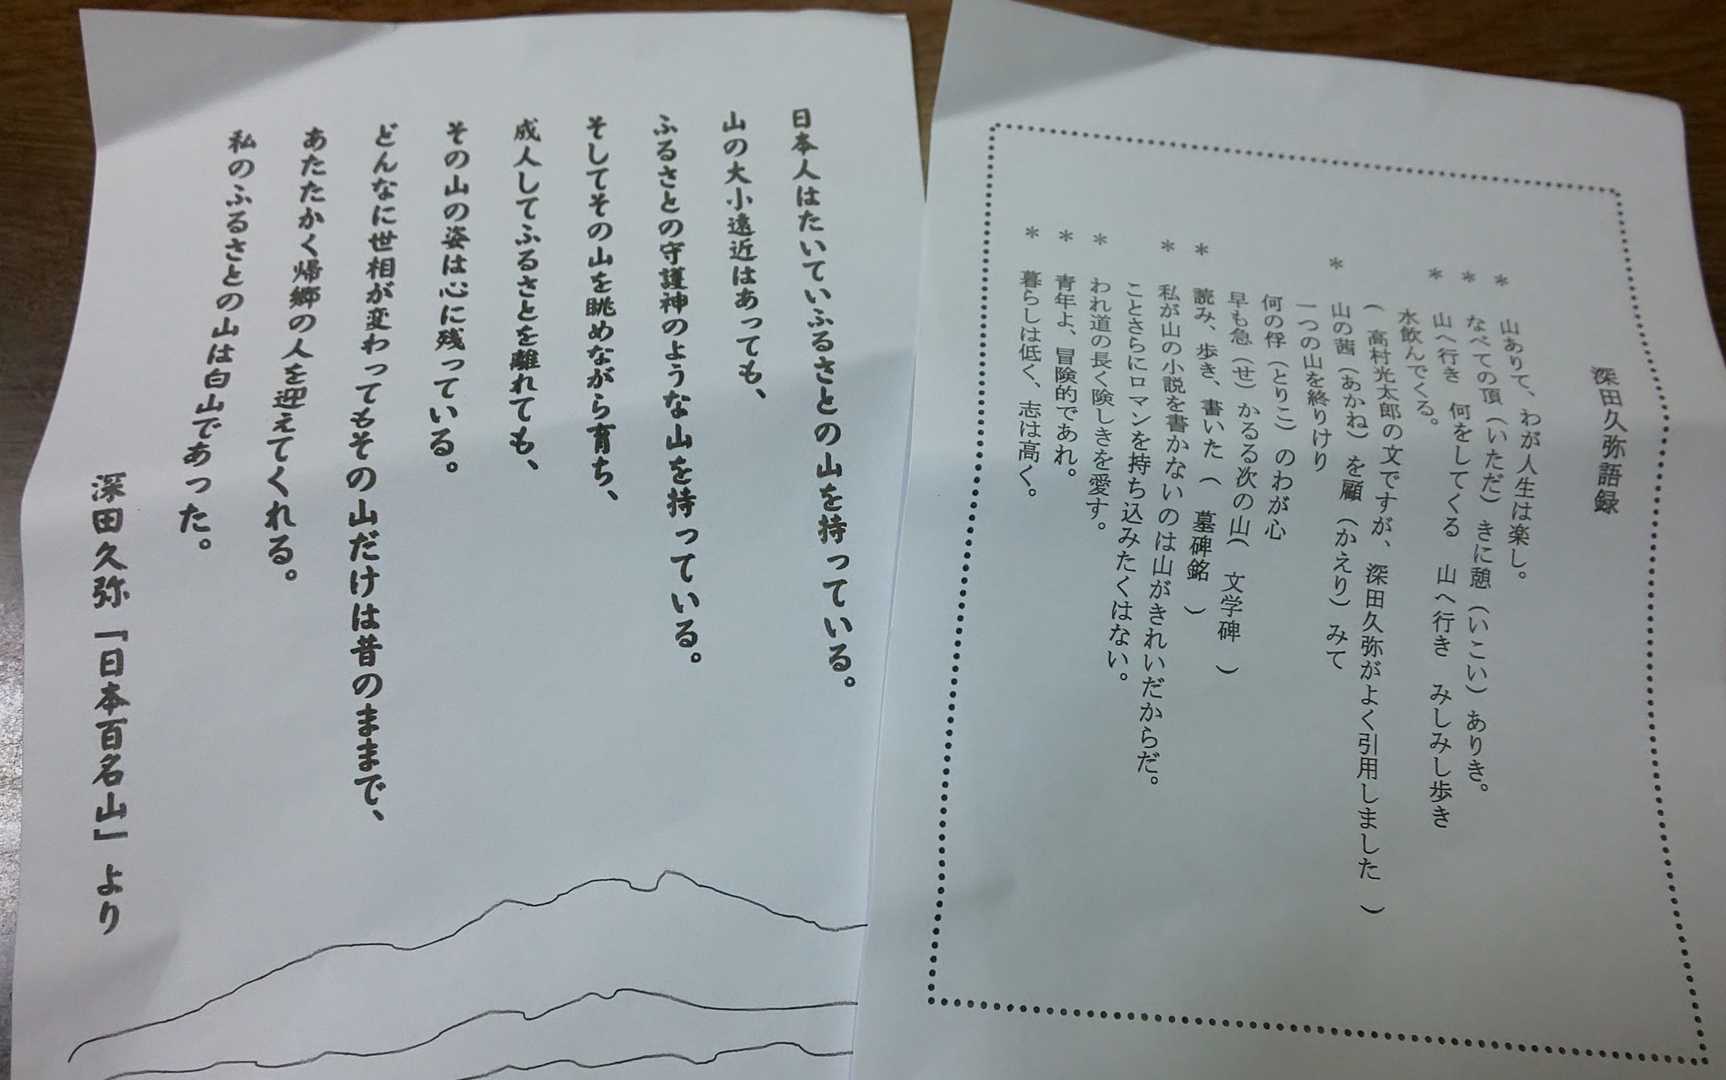 深田久弥語録
* 山ありて、わが人生は楽し。
* なべての頂（いただ）きに憩（いこい）ありき。
* 山へ行き 何をしてくる 山へ行き みしみし歩き
水飲んでくる。
（ 高村光太郎の文ですが、深田久弥がよく引用しました ）
* 山の茜（あかね）を顧（かえり）みて
一つの山を終りけり
何の俘（とりこ）のわが心
早も急（せ）かるる次の山（ 文学碑 ）
* 読み、歩き、書いた（ 墓碑銘 ）
* 私が山の小説を書かないのは山がきれいだからだ。
ことさらにロマンを持ち込みたくはない。
* われ道の長く険しきを愛す。
* 青年よ、冒険的であれ。
* 暮らしは低く、志は高く。
日本人はたいていふるさとの山を持っている。
山の大小遠近はあっても、
ふるさとの守護神のような山を持っている。
そしてその山を眺めながら育ち、
成人してふるさとを離れても、
その山の姿は心に残っている。
どんなに世相が変わってもその山だけは昔のままで、
あたたかく帰郷の人を迎えてくれる。
私のふるさとの山は白山であった。
深田久弥「日本百名山」より